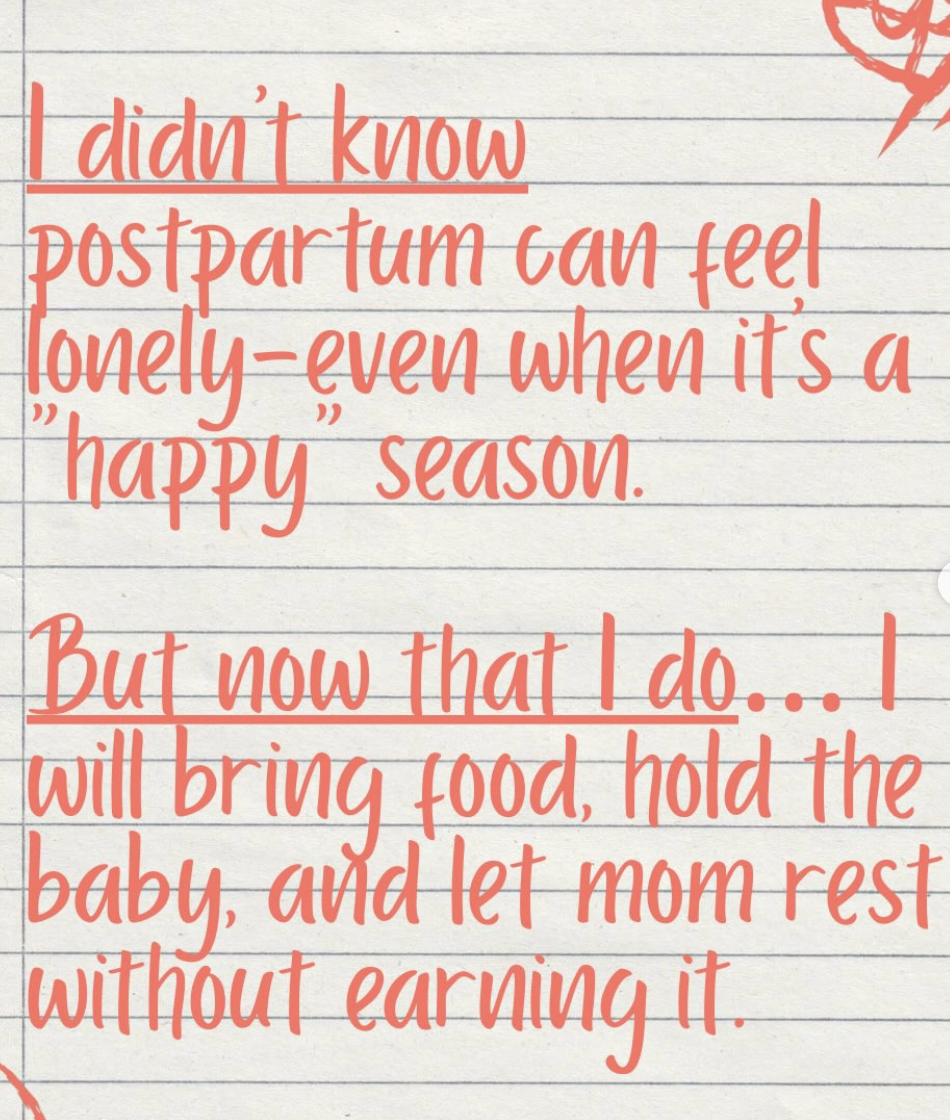 I didn't know
postpartum can feel
lonely–even when it's a
"happy" season.
But now that I do... I
will bring food, hold the
baby, and let mom rest
without earning it.